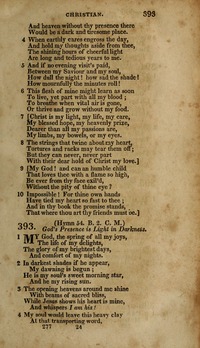 CHRISTIAN. 393
And heaven without thy presence there
Would be a dark and tiresome place.
4 When earthly cares engross the day,
And hold my thoughts aside from thee,
The shining hours of cheerful light
Are long and tedious years to me.
5 And if no evening visit's paid,
Between my Saviour and my soul,
How dull the night! how sad the shade!
How mournfully the minutes roll!
6 This flesh of mine might learn as soon
To live, yet part with all my blood;
To breathe when vital air is gone,
Or thrive and grow without my food.
7 [Christ is my light, my life, my care,
My blessed hope, my heavenly prize,
Dearer than all my passions are,
My limbs, my bowels, or my eyes.
8 The strings that twine about my heart,
Tortures and racks may tear them off;
But they can never, never part
With their dear hold of Christ my love.]
9 [My God! and can an humble child
That loves thee with a flame so high,
Be ever from thy face exil'd,
Without the pity of thine eye?
10 Impossible! For thine own hands
Have tied my heart so fast to thee;
And in thy book the promise stands,
That where thou art thy friends must be.]
393. (Hymn 54. B. 2. C. M.)
God's Presence is Light in Darkness.
1 MY God, the spring of all my joys,
The life of my delights,
The glory of my brightest days,
And comfort of my nights.
2 In darkest shades if he appear,
My dawning is begun;
He is my soul's sweet morning star,
And he my rising sun.
3 The opening heavens around me shine
With beams of sacred bliss,
While Jesus shows his heart is mine,
And whispers I am his!
4 My soul would leave this heavy clay
At that transporting word,
277 24